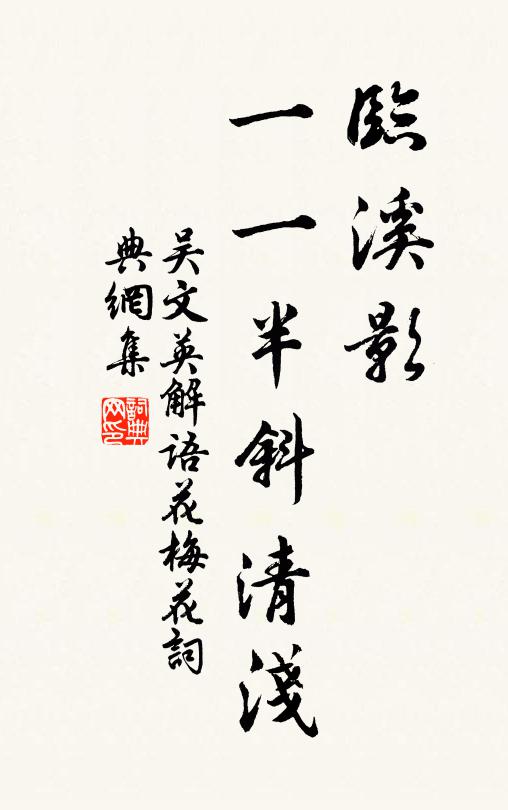 臨溪影
一一半斜清淺
吴文英解語花梅花詞
典網集
詞典
网印